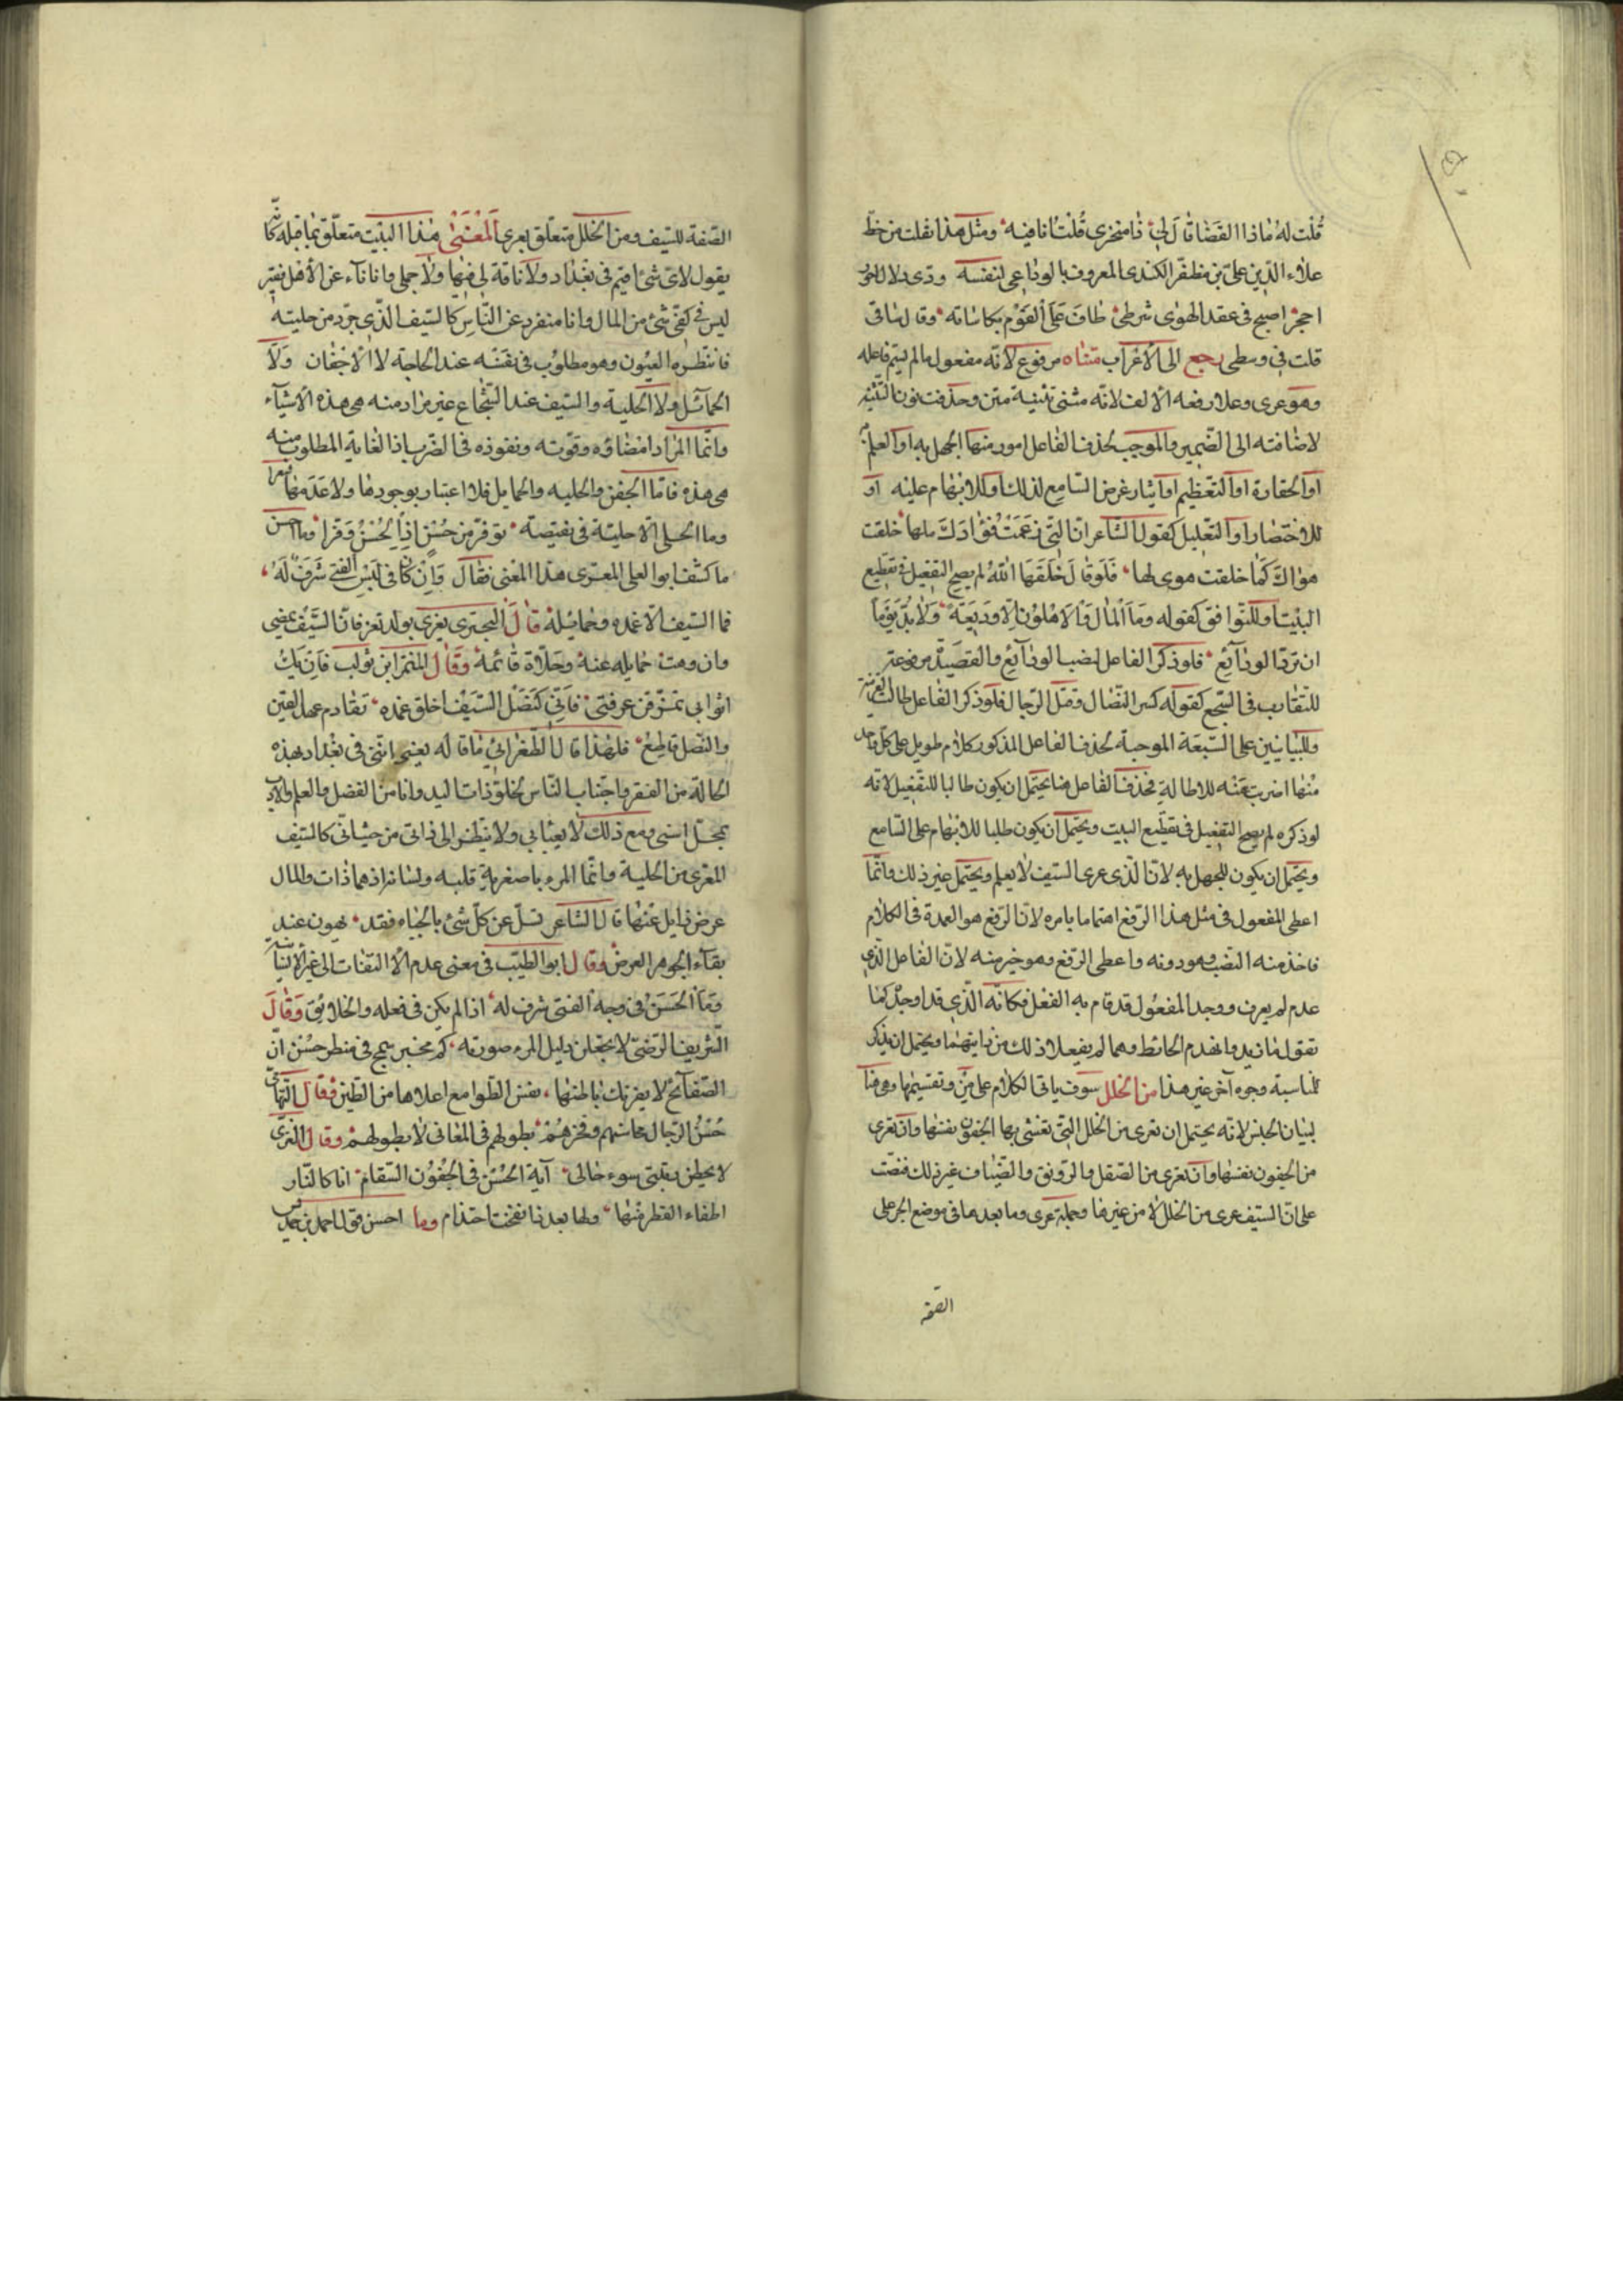 قُلت لهُ ماذا القضا قال لي فا منخرى قُلت انا فيه ومثل هذا نقلت من خط
علاء الدين على بن مظفر الكندى المعروف بالوداعى لنفسه وذى دلال احور
احجر اصبح فى عقد الهوى شرطى طاف على القوم بكاساته وقال ساقى
قلت فى وسطى رجع الى الاعراب متناه مرفوع لانه مفعول ما لم يسم فاعله
وهو عرى وعلامة رفعه الالف لانه مثنى تثنية متن وحذفت نون التثنية
لاضافته الى الضمير والموجب لحذف الفاعل امور منها الجهل به او العلم به
او الحقارة او التعظيم او ايثار غرض السامع لذلك او للابهام عليه او
للاختصار او التعليل كقول الشاعر ان التى زعمت فؤادك ملها خلقت
هواك كما خلقت هوى لها فلو قال خلقها الله لم يصح التفعيل فى تقطيع
البيت او للتوافق كقوله وما المال والاهلون الا وديعة ولا بد يوما
ان ترد الودائع فلو ذكر الفاعل لنصب الودائع والقصيد مرفوعة
للتقارب فى السجع كقوله كسر النضال وقتل الرجال فلو ذكر الفاعل لطالت القرينة
وللبيانيين على السبعة الموجبة لحذف الفاعل المذكور كلام طويل على كل واحد
منها اضربت عنه للاطالة فحذف الفاعل هنا يحتمل ان يكون طالبا للتفعيل لانه
لو ذكره لم يصح التفعيل فى تقطيع البيت ويحتمل ان يكون طلبا للابهام على السامع
ويحتمل ان يكون للجهل به لان الذى عرى السيف لا يعلم ويحتمل غير ذلك وانما
اعطى المفعول فى مثل هذا الرفع اهتماما بامره لان الرفع هو العمدة فى الكلام
فاخذ منه النصب وهو دونه واعطى الرفع وهو خير منه لان الفاعل الذى
عدم لم يعرف ووجد المفعول قد قام به الفعل فكانه الذى قد اوجد كما
تقول مات زيد وانهدم الحائط وهما لم يفعلا ذلك من ذاتيهما ويحتمل ان يذكر
لمناسبة وجوه آخر غير هذا من الخلل سوف ياتى الكلام على من وتقسيمها وهى هنا
لبيان الجنس لانه يحتمل ان تعرى من الخلل التى تغشى بها الجفون نفسها وان تعرى
من الجفون نفسها وان تعرى من الصقل والرونق والضياء وغير ذلك فنصت
على ان السيف عرى من الخلل لا من غيرها وجملة عرى وما بعدها فى موضع الجر على
الصفة
الصفة للسيف ومن الخلل متعلق بعرى المعنى هذا البيت متعلق بما قبله كانه
يقول لاى شئ اقيم فى بغداد ولا ناقة لى فيها ولا جملى وانا ناء عن الاهل فقير
ليس فى كفى شئ من المال وانا منفرد عن الناس كالسيف الذى جرد من حليته
فانتظره العيون وهو مطلوب فى نفسه عند الحاجة لا الاجفان ولا
الحمائل ولا الحلية والسيف عند الشجاع غير مراد منه هى هذه الاشياء
وانما المراد امضاؤه وقوته ونفوذه فى الضرب اذ الغاية المطلوب منه
هى هذه فاما الجفن والحلية والحمايل فلا اعتبار بوجودها ولا عدمها
وما الحلى الا حلية فى نقيصة توفر من حسن اذا الحسن وقرا وما احسن
ما كشف ابو العلى المعرى هذا المعنى فقال وان كان فى لبس الفتى شرف له
فما السيف الا غمده وحمائله قال البحترى يعزى بولد تعز فان السيف يمضى
وان وهت حمايله عنه وخلاه قائمه وقال النمر ابن تولب فان يك
اثوابى تمزقن عن فتى فانى كنصل السيف اخلق غمده تقادم عهد القين
والنصل قاطع فلهذا قال الطغرائى ما قاله يعنى اننى فى بغداد بهذه
الحالة من الفقر واجتناب الناس لخلو ذات اليد وانا من الفضل والعلم والادب
بمحل اسنى ومع ذلك لا يعبأ بى ولا ينظر الى ذاتى من حيث انى كالسيف
المعرى من الحلية وانما المرء باصغريه قلبه ولسانه اذ هما ذات والمال
عرض زايل عنها قال الشاعر تسل عن كل شئ بالحياه فقد يهون عند
بقاء الجوهر العرض وقال ابو الطيب فى معنى عدم الالتفات الى غير الانسان
وما الحسن فى وجه الفتى شرف له اذا لم يكن فى فعله والخلائق وقال
الشريف الرضى لا تجعلن دليل المرء صورته كم مخبر سمج فى منظر حسن ان
الصفائح لا يغررك باطنها نقش الطوامع اعلاها من الطين وقال التهامى
حسن الرجال بحاسنهم وفخرهم بطولهم فى المعانى لا بطولهم وقال الغزى
لا يحطن رقبتى سوء حالى آية الحسن فى الجفون السقام انا كالنار
اطفاء القطر منها ولها بعد نفخت احتدام وما احسن قول احمد بن